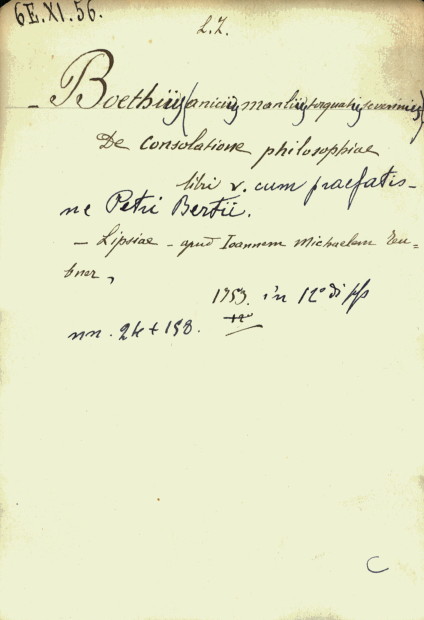 6E.XI.56.
L.Z.
- Boethius (anicius manlius torquatus severinus)
De consolatione philosophiae
libri V. cum praefatio-
ne Petri Bertii.
- Lipsiae - apud Ioannem Michaelem Teu=
bner,
1753. in 12° di pp
nn. 24 + 198.
C